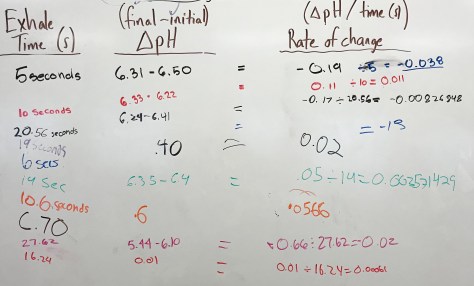 Exhale (final-initial) (ΔpH/time (s)
Time (s) ΔpH Rate of change
5 seconds 6.31 - 6.50 = -0.19 ÷5 = -0.038
10 seconds 6.33 - 6.22 = 0.11 ÷10 = 0.011
20.56 seconds 6.24 - 6.41 = -0.17 ÷ 20.56 = -0.00826848
19 seconds .40 = 0.02
6 secs = -13
14 Sec 6.35 - 6.4 = .05 ÷ 14 = 0.003571429
10.6 seconds .6 .0566
6.70
27.62 5.44 - 6.10 = 0.66 ÷ 27.62 = 0.02
16.24 0.01 = 0.01 ÷ 16.24 = 0.00061